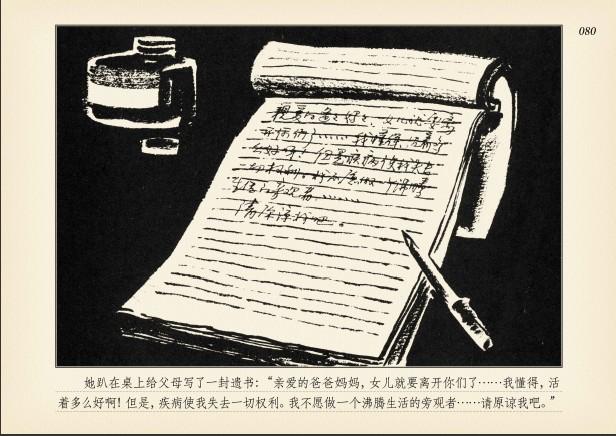 080
亲爱的爸爸妈妈、女儿就要离
开你们了……我懂得，活着多
么好啊！但是疾病使我失去
一切权利。我不愿做一个沸腾
生活的旁观者………
请原谅我吧。
她趴在桌上给父母写了一封遗书：“亲爱的爸爸妈妈，女儿就要离开你们了……我懂得，活
着多么好啊！但是，疾病使我失去一切权利。我不愿做一个沸腾生活的旁观者……请原谅我吧。”